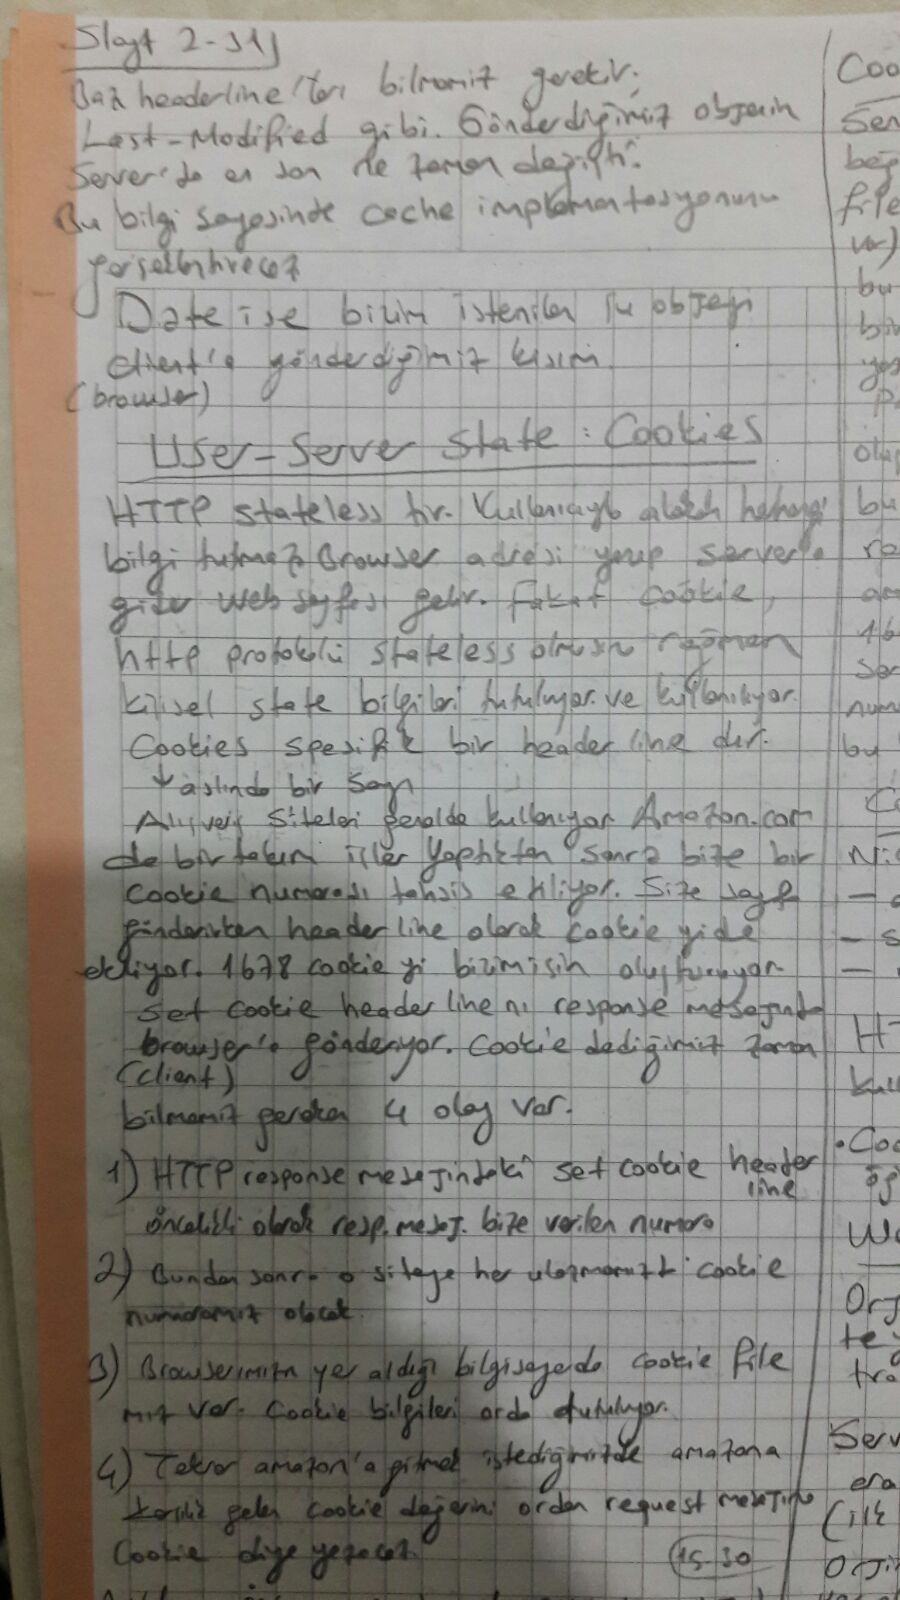 Slayt 2-31)
Bazı headerline'ları bilmemiz gerekir.
Last-Modified gibi. Gönderdiğimiz objenin
Server'da en son ne zaman değişti?
Bu bilgi sayesinde cache implementasyonunu
gerçekleştireceğiz
Date ise bizim istenilen bu objeyi
client'a gönderdiğimiz kısım
(browser)
User-Server State: Cookies
HTTP stateless tır. Kullanıcıyla alakalı herhangi
bilgi tutmaz. Browser adresi yazıp server'a
gider web sayfası gelir. Fakat cookie,
http protokolü stateless olmasına rağmen
kişisel state bilgileri tutuluyor ve kullanılıyor.
Cookies spesifik bir header line dır.
↓ aslında bir sayı
Alışveriş siteleri genelde kullanıyor Amazon.com
da bir takım işler yaptıktan sonra bize bir
cookie numarası tahsis ediliyor. Size sayfa
gönderirken header line olarak cookie yide
ekliyor. 1678 cookie yi bizim için oluşturuyor.
Set cookie header line nı response mesajında
browser'a gönderiyor. Cookie dediğimiz zaman
(client)
bilmemiz gereken 4 olay var.
1) HTTP response mesajındaki set cookie header
line
öncelikli olarak resp. mesaj. bize verilen numara
2) Bundan sonra o siteye her ulaşmamızda cookie
numaramız olacak.
3) Browserımızın yer aldığı bilgisayarda cookie file
mız var. Cookie bilgileri orda tutuluyor.
4) Tekrar amazon'a gitmek istediğimizde amazona
karşılık gelen cookie değerini ordan request mesajına
Cookie diye yazacağız.
15-30
Coo
Ser
bağ
file
var)
bu
bir
bu
num
bu
HT
kull
• Coo
Orj
te
tra
Serv
(ilk
Orji